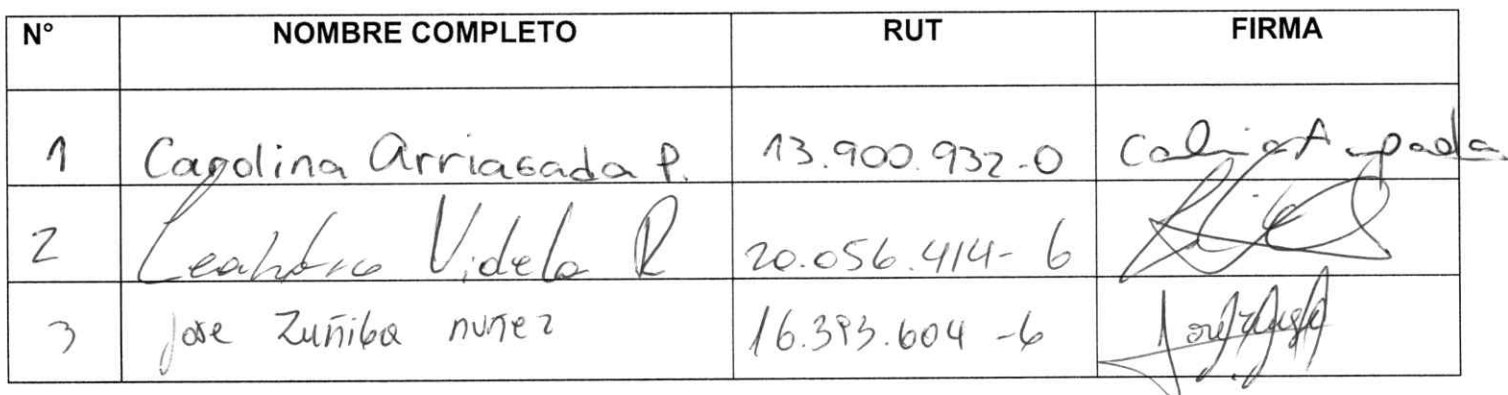 N° NOMBRE COMPLETO RUT FIRMA
1 Carolina Arriagada P. 13.900.932-0
2 Leandro Videla R 20.056.414-6
3 jose Zuñiga nuñez 16.393.604-6